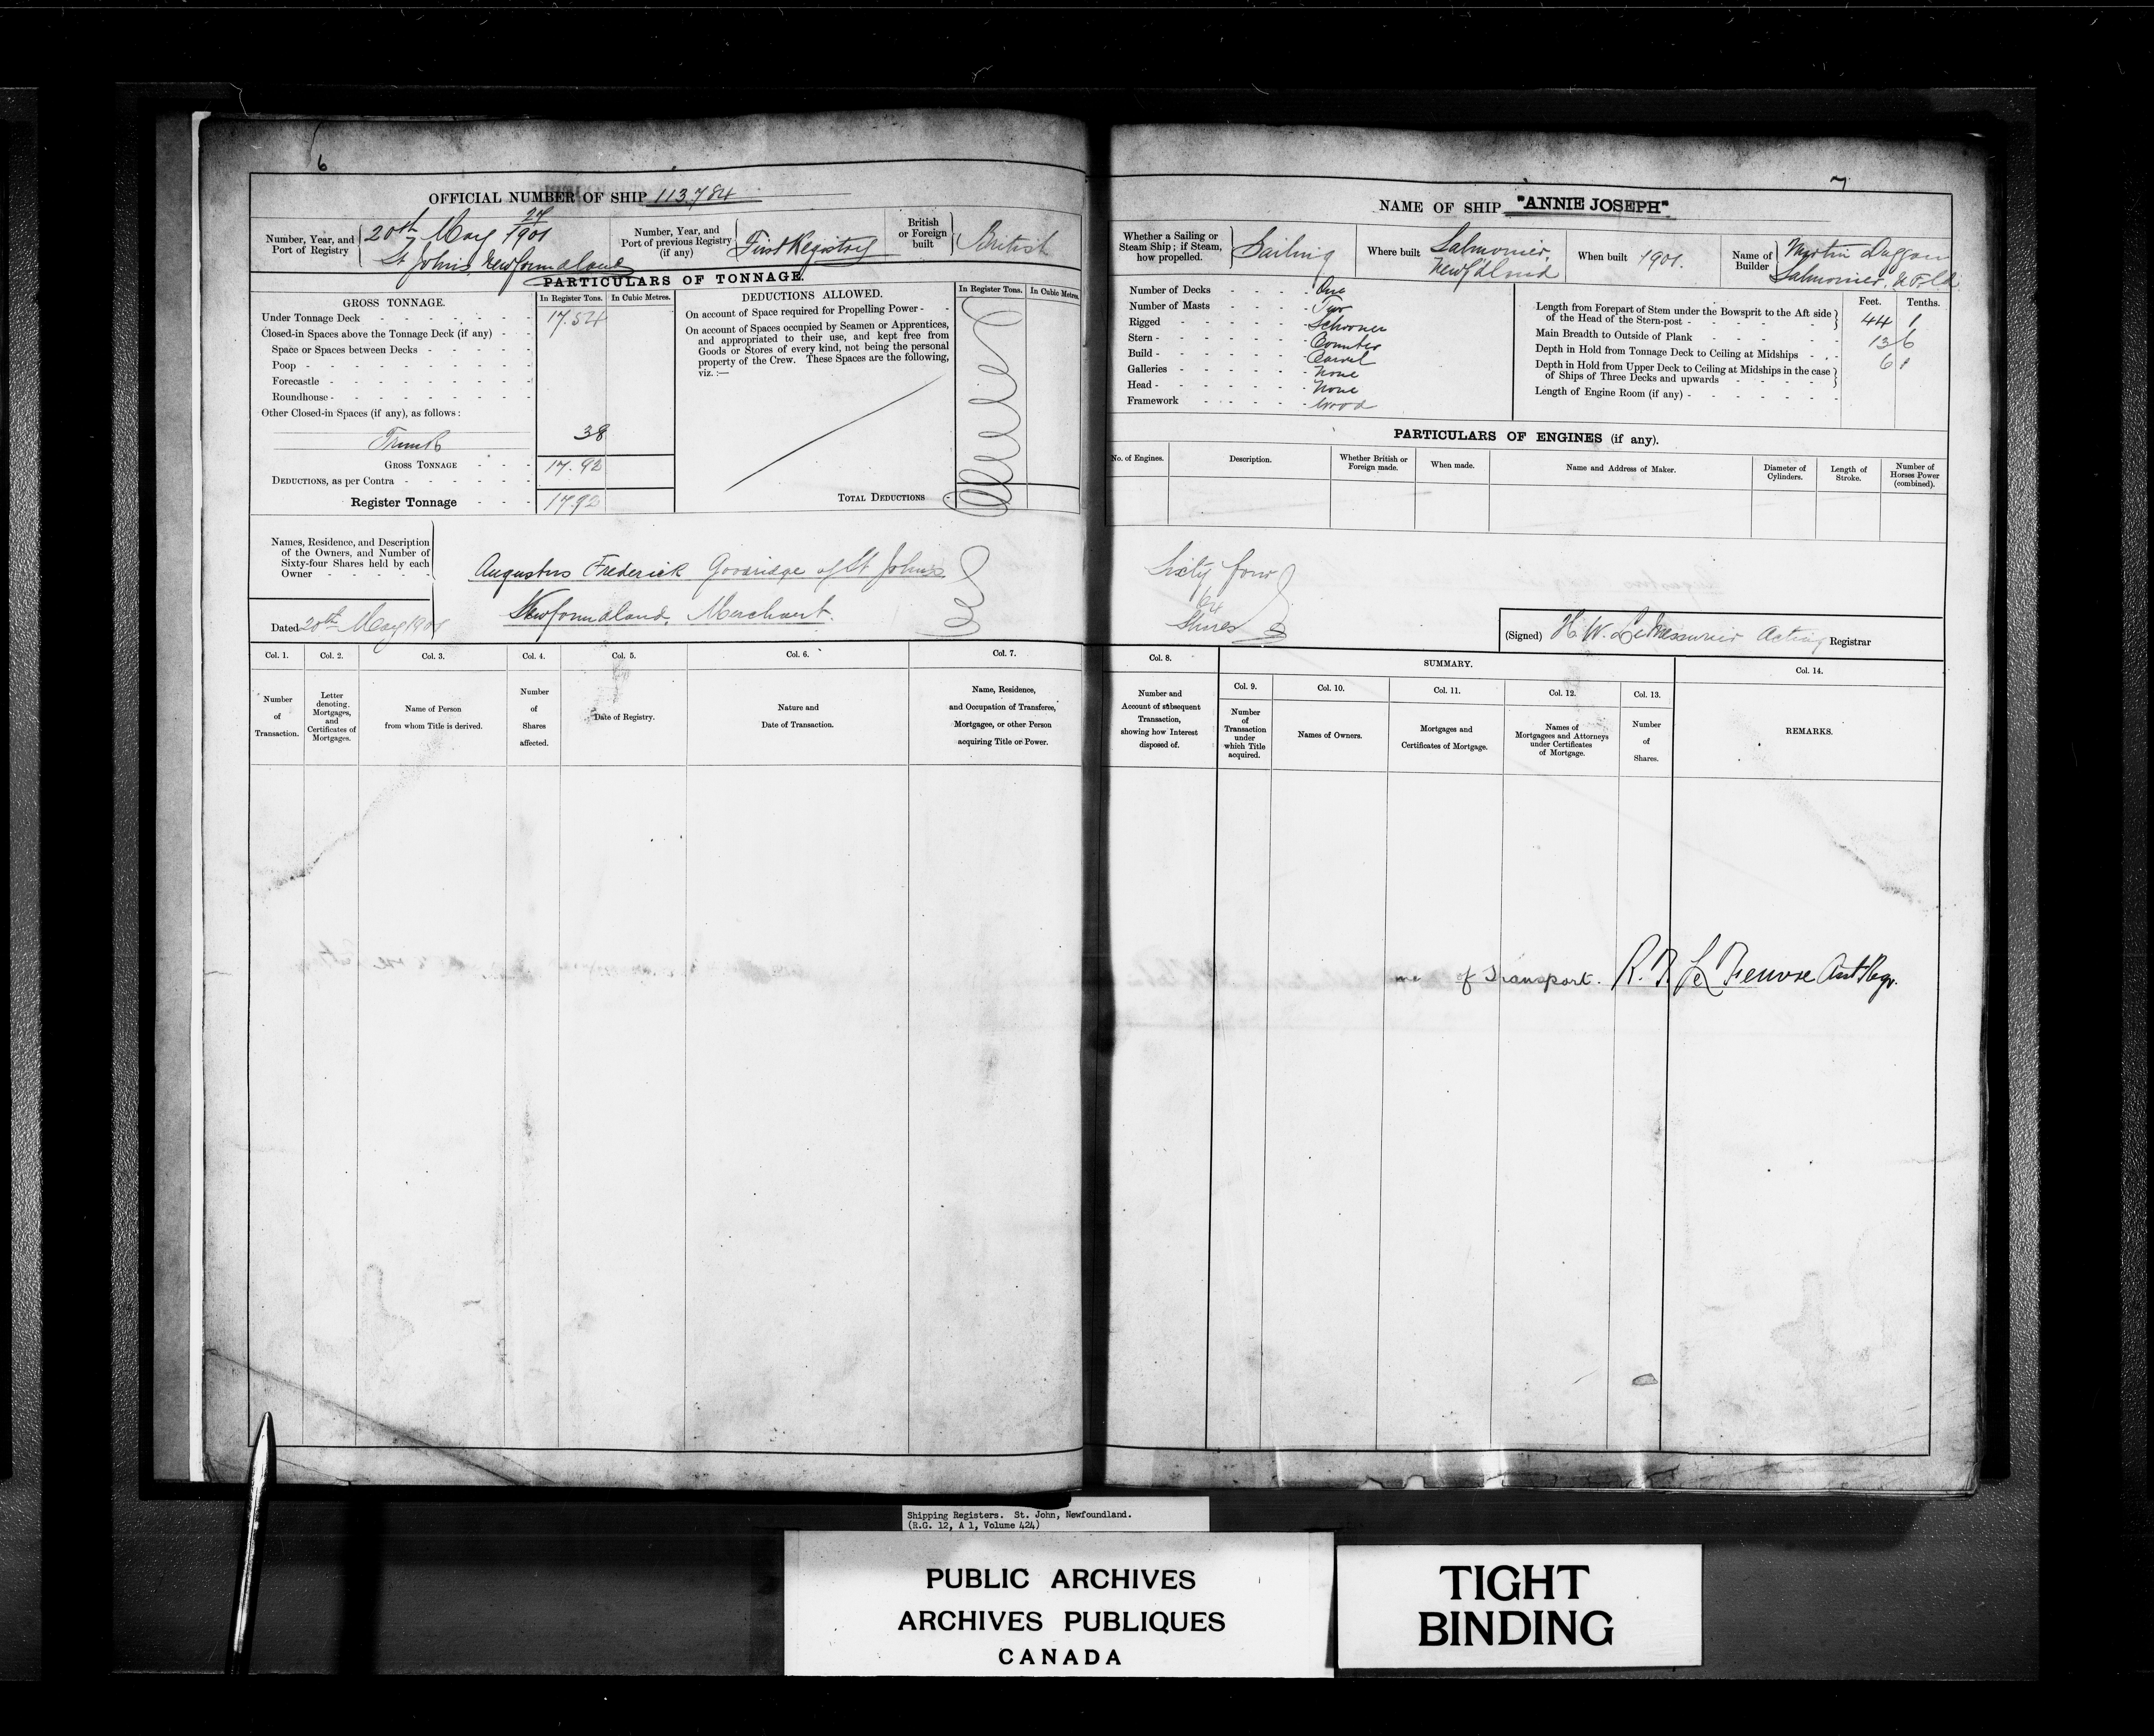 6
OFFICIAL NUMBER OF SHIP 113,784
Number, Year, and
Port of Registry
20th May 27/1901
St Johns Newfoundland
Number, Year, and
Port of previous Registry
(if any)
First Registry
British
or Foreign
built
British
PARTICULARS OF TONNAGE.
GROSS TONNAGE.
In Register Tons.
In Cubic Metres.
Under Tonnage Deck
17.54
Closed-in Spaces above the Tonnage Deck (if any)
Space or Spaces between Decks
Poop
Forecastle
Roundhouse
Other Closed-in Spaces (if any), as follows:
Trunk
38
GROSS TONNAGE
17.92
DEDUCTIONS, as per Contra
Register Tonnage
17.92
DEDUCTIONS ALLOWED.
In Register Tons.
In Cubic Metres.
On account of Space required for Propelling Power
On account of Spaces occupied by Seamen or Apprentices,
and appropriated to their use, and kept free from
Goods or Stores of every kind, not being the personal
property of the Crew. These Spaces are the following,
viz.:—
TOTAL DEDUCTIONS
Names, Residence, and Description
of the Owners, and Number of
Sixty-four Shares held by each
Owner
Dated 20th May 1901
Augustus Frederick Goodridge of St John's
Newfoundland, Merchant.
Col. 1.
Number
of
Transaction.
Col. 2.
Letter
denoting
Mortgages,
and
Certificates of
Mortgages.
Col. 3.
Name of Person
from whom Title is derived.
Col. 4.
Number
of
Shares
affected.
Col. 5.
Date of Registry.
Col. 6.
Nature and
Date of Transaction.
Col. 7.
Name, Residence,
and Occupation of Transferee,
Mortgagee, or other Person
acquiring Title or Power.
7
NAME OF SHIP "ANNIE JOSEPH"
Whether a Sailing or
Steam Ship; if Steam,
how propelled.
Sailing
Where built
Salmonier,
Newfdland
When built 1901.
Name of
Builder
Martin Duggan
Salmonier, N.F.ld
Number of Decks
One
Number of Masts
Two
Rigged
Schooner
Stern
Counter
Build
Carvel
Galleries
None
Head
None
Framework
Wood
Feet.
Tenths.
Length from Forepart of Stem under the Bowsprit to the Aft side
of the Head of the Stern-post
44 1
Main Breadth to Outside of Plank
13 6
Depth in Hold from Tonnage Deck to Ceiling at Midships
6 1
Depth in Hold from Upper Deck to Ceiling at Midships in the case
of Ships of Three Decks and upwards
Length of Engine Room (if any)
PARTICULARS OF ENGINES (if any).
No. of Engines.
Description.
Whether British or
Foreign made.
When made.
Name and Address of Maker.
Diameter of
Cylinders.
Length of
Stroke.
Number of
Horses Power
(combined).
Sixty four
64
Shares
(Signed) H. W. LeMessurier Acting Registrar
Col. 8.
Number and
Account of subsequent
Transaction,
showing how Interest
disposed of.
SUMMARY.
Col. 9.
Number
of
Transaction
under
which Title
acquired.
Col. 10.
Names of Owners.
Col. 11.
Mortgages and
Certificates of Mortgage.
Col. 12.
Names of
Mortgagees and Attorneys
under Certificates
of Mortgage.
Col. 13.
Number
of
Shares.
Col. 14.
REMARKS.
of Transport.
Shipping Registers. St. John, Newfoundland.
(R.G. 12, A 1, Volume 424)
PUBLIC ARCHIVES
ARCHIVES PUBLIQUES
CANADA
TIGHT
BINDING